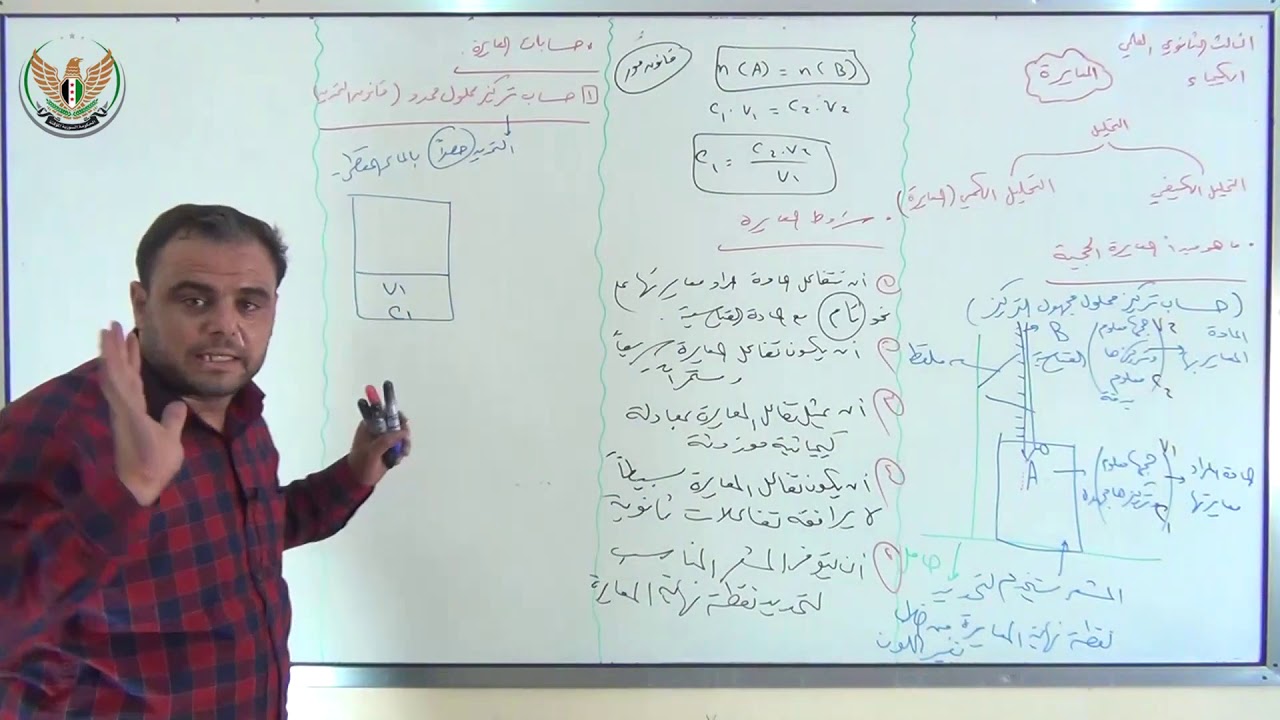 الثالث الثانوي العلمي
الكيمياء
المعايرة
التحليل
التحليل الكيفي
التحليل الكمي (المعايرة)
• ما هو مبدأ المعايرة الحجمية
(حساب تركيز محلول مجهول التركيز)
المادة
المعاير بها
V₂ حجمها معلوم
وتركيزها
معلوم C₂
بدقة
B
القياسية
سحاحة
A
المادة المراد
معايرتها
V₁ حجمها معلوم
تركيزها مجهول
C₁
حامل
المشعر يستخدم لتحديد
نقطة نهاية المعايرة من خلال
تغير اللون
قانون مور
n(A) = n(B)
C₁.V₁ = C₂.V₂
C₁ = C₂.V₂ / V₁
• شروط المعايرة
① أن تتفاعل المادة المراد معايرتها على
نحو تام مع المادة القياسية.
② أن يكون تفاعل المعايرة سريعاً
ومستمراً
③ أن يمثل تفاعل المعايرة بمعادلة
كيميائية موزونة
④ أن يكون تفاعل المعايرة بسيطاً
لا يرافقه تفاعلات ثانوية
أن يتوفر المشعر المناسب
لتحديد نقطة نهاية المعايرة
• حسابات المعايرة.
1 حساب تركيز محلول ممدد (قانون التمديد)
التمديد حصراً بالماء المقطر.
V1
C1